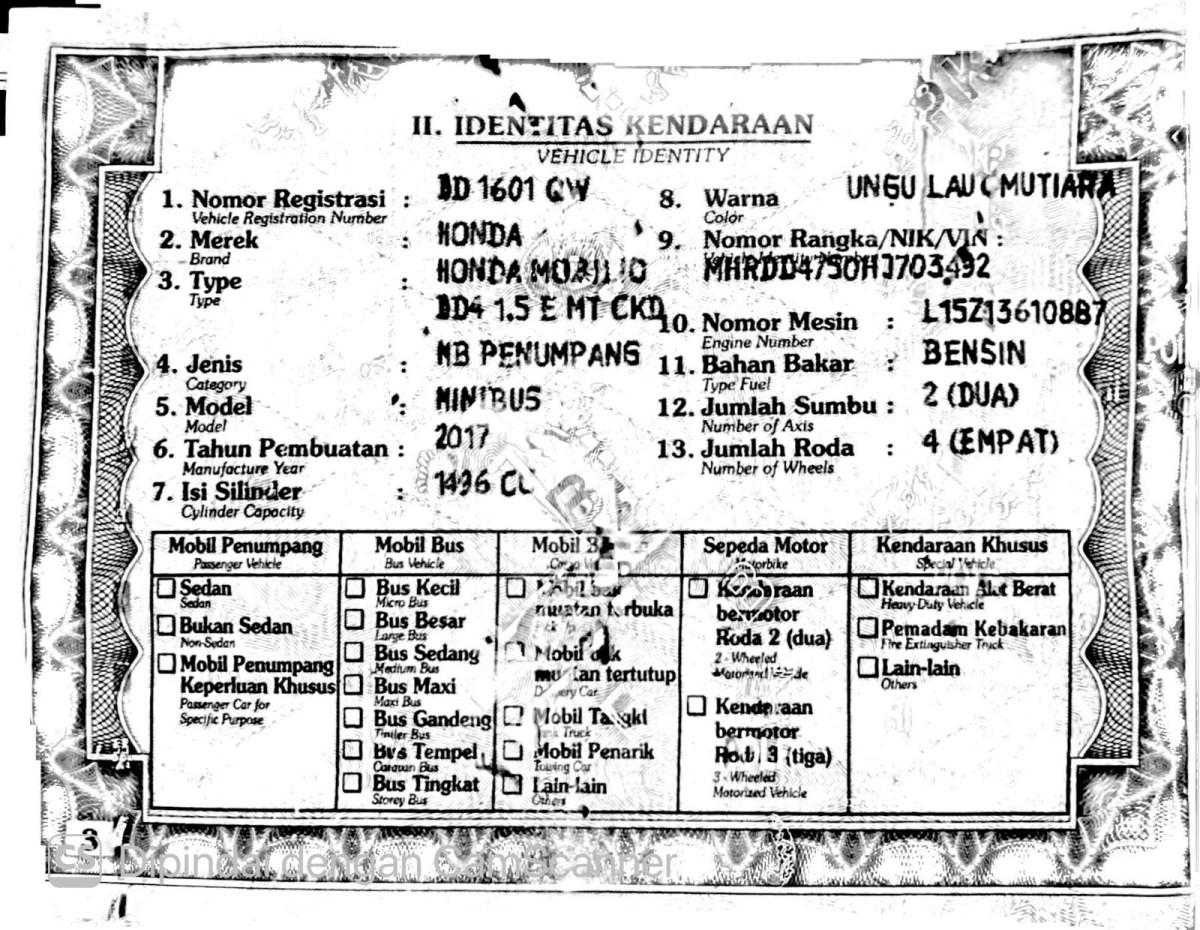 II. IDENTITAS KENDARAAN
VEHICLE IDENTITY
1. Nomor Registrasi : BD 1601 QW
Vehicle Registration Number
2. Merek : HONDA
Brand
3. Type : HONDA MOBILIO
Type
DD4 1.5 E MT CKD
4. Jenis : MB PENUMPANG
Category
5. Model : MINIBUS
Model
6. Tahun Pembuatan : 2017
Manufacture Year
7. Isi Silinder : 1496 CC
Cylinder Capacity
8. Warna UNGU MUTIARA
Color
9. Nomor Rangka/NIK/VIN :
MHRDD4750HJ703492
10. Nomor Mesin : L15Z13610887
Engine Number
11. Bahan Bakar : BENSIN
Type Fuel
12. Jumlah Sumbu : 2 (DUA)
Number of Axis
13. Jumlah Roda : 4 (EMPAT)
Number of Wheels
Mobil Penumpang
Passenger Vehicle
Sedan
Sedan
Bukan Sedan
Non-Sedan
Mobil Penumpang
Keperluan Khusus
Passenger Car for
Specific Purpose
Mobil Bus
Bus Vehicle
Bus Kecil
Micro Bus
Bus Besar
Large Bus
Bus Sedang
Medium Bus
Bus Maxi
Maxi Bus
Bus Gandeng
Trailer Bus
Bus Tempel
Caravan Bus
Bus Tingkat
Storey Bus
Mobil
Mobil bak
muatan terbuka
Mobil bak
muatan tertutup
Delivery Car
Mobil Tangki
Tank Truck
Mobil Penarik
Towing Car
Lain-lain
Others
Sepeda Motor
Motorbike
Kendaraan
bermotor
Roda 2 (dua)
2 - Wheeled
Motorized Vehicle
Kendaraan
bermotor
Roda 3 (tiga)
3 - Wheeled
Motorized Vehicle
Kendaraan Khusus
Special Vehicle
Kendaraan Alat Berat
Heavy Duty Vehicle
Pemadam Kebakaran
Fire Extinguisher Truck
Lain-lain
Others
3
CS Dipindai dengan CamScanner